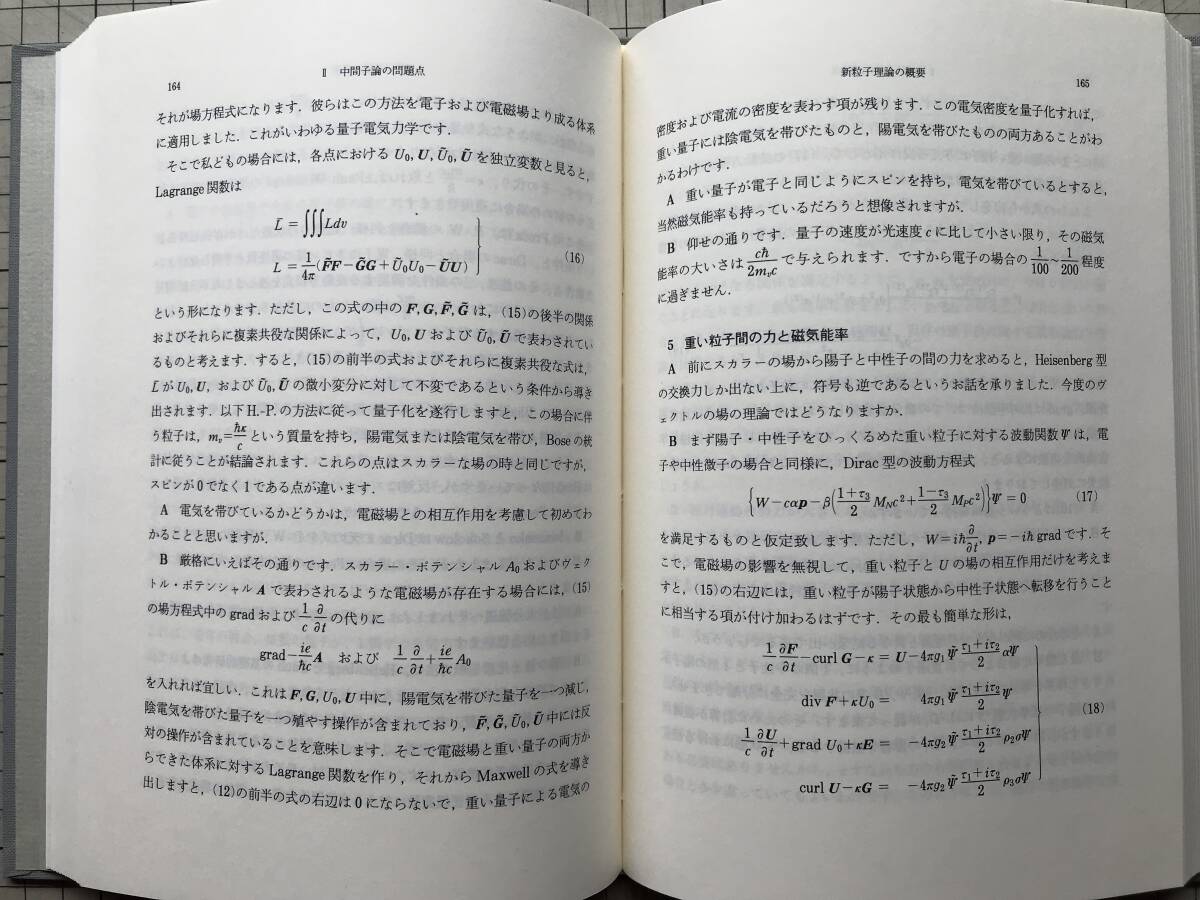 164
Ⅱ 中間子論の問題点
それが場方程式になります．彼らはこの方法を電子および電磁場より成る体系
に適用しました．これがいわゆる量子電気力学です．
そこで私どもの場合には，各点における U₀, U, Ũ₀, Ũ を独立変数と見ると，
Lagrange 関数は
L̄ = ∭Ldv
L = 1/4π (F̃F−G̃G+Ũ₀U₀−ŨU)
(16)
という形になります．ただし，この式の中の F, G, F̃, G̃ は，(15)の後半の関係
およびそれらに複素共役な関係によって，U₀, U および Ũ₀, Ũ で表わされてい
るものと考えます．すると，(15)の前半の式およびそれらに複素共役な式は，
L̄ が U₀, U, および Ũ₀, Ũ の微小変分に対して不変であるという条件から導き
出されます．以下 H.-P. の方法に従って量子化を遂行しますと，この場合に伴
う粒子は，mᵥ=ħκ/c という質量を持ち，陽電気または陰電気を帯び，Bose の統
計に従うことが結論されます．これらの点はスカラーな場の時と同じですが，
スピンが 0 でなく 1 である点が違います．
A 電気を帯びているかどうかは，電磁場との相互作用を考慮して初めてわ
かることと思いますが．
B 厳格にいえばその通りです．スカラー・ポテンシャル A₀ およびヴェク
トル・ポテンシャル A で表わされるような電磁場が存在する場合には，(15)
の場方程式中の grad および 1/c ∂/∂t の代りに
grad−ie/ħc A および 1/c ∂/∂t+ie/ħc A₀
を入れれば宜しい．これは F, G, U₀, U 中に，陽電気を帯びた量子を一つ減じ，
陰電気を帯びた量子を一つ殖やす操作が含まれており，F̃, G̃, Ũ₀, Ũ 中には反
対の操作が含まれていることを意味します．そこで電磁場と重い量子の両方か
らできた体系に対する Lagrange 関数を作り，それから Maxwell の式を導き
出しますと，(12)の前半の式の右辺は 0 にならないで，重い量子による電気の
新粒子理論の概要
165
密度および電流の密度を表わす項が残ります．この電気密度を量子化すれば，
重い量子には陰電気を帯びたものと，陽電気を帯びたものの両方あることがわ
かるわけです．
A 重い量子が電子と同じようにスピンを持ち，電気を帯びているとすると，
当然磁気能率も持っているだろうと想像されますが．
B 仰せの通りです．量子の速度が光速度 c に比して小さい限り，その磁気
能率の大いさは cħ/2mᵥc で与えられます．ですから電子の場合の 1/100～1/200 程度
に過ぎません．
5 重い粒子間の力と磁気能率
A 前にスカラーの場から陽子と中性子の間の力を求めると，Heisenberg 型
の交換力しか出ない上に，符号も逆であるというお話を承りました．今度のヴ
ェクトルの場の理論ではどうなりますか．
B まず陽子・中性子をひっくるめた重い粒子に対する波動関数 Ψ は，電
子や中性微子の場合と同様に，Dirac 型の波動方程式
{W−cαp−β(1+τ₃/2 M_N c²+1−τ₃/2 M_P c²)}Ψ = 0 (17)
を満足するものと仮定致します．ただし，W=iħ∂/∂t, p=−iħ grad です．そ
こで，電磁場の影響を無視して，重い粒子と U の場の相互作用だけを考えま
すと，(15)の右辺には，重い粒子が陽子状態から中性子状態へ転移を行うこと
に相当する項が付け加わるはずです．その最も簡単な形は，
1/c ∂F/∂t−curl G−κ = U−4πg₁Ψ̃ τ₁+iτ₂/2 αΨ
div F+κU₀ = 4πg₁Ψ̃ τ₁+iτ₂/2 Ψ
1/c ∂U/∂t+grad U₀+κE = −4πg₂Ψ̃ τ₁+iτ₂/2 ρ₂σΨ
curl U−κG = −4πg₂Ψ̃ τ₁+iτ₂/2 ρ₃σΨ
(18)